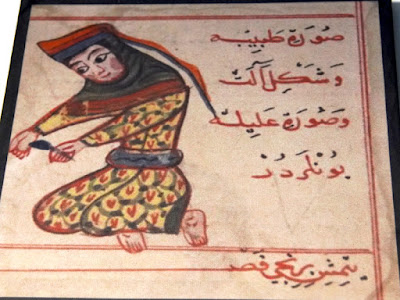 صُورَة طَبِيبَه
وَشَكْلِ آلَتْ
وَصُورَة عَلِيلَه
بُونْلَرْدُرْ
يِتْمِشْ بِرِنْجِي فَصْل